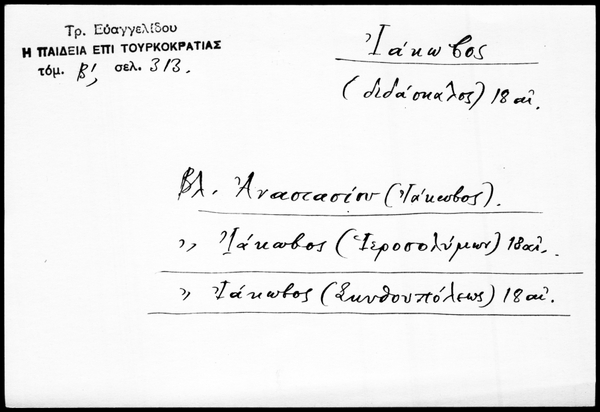 Τρ. Εὐαγγελίδου
Η ΠΑΙΔΕΙΑ ΕΠΙ ΤΟΥΡΚΟΚΡΑΤΙΑΣ
τόμ. Β', σελ. 313.
Ἰάκωβος
(διδάσκαλος) 18 αἰ.
Βλ. Ἀναστασίου (Ἰάκωβος).
,, Ἰάκωβος (Ἱεροσολύμων) 18 αἰ.
,, Ἰάκωβος (Σκυθουπόλεως) 18 αἰ.